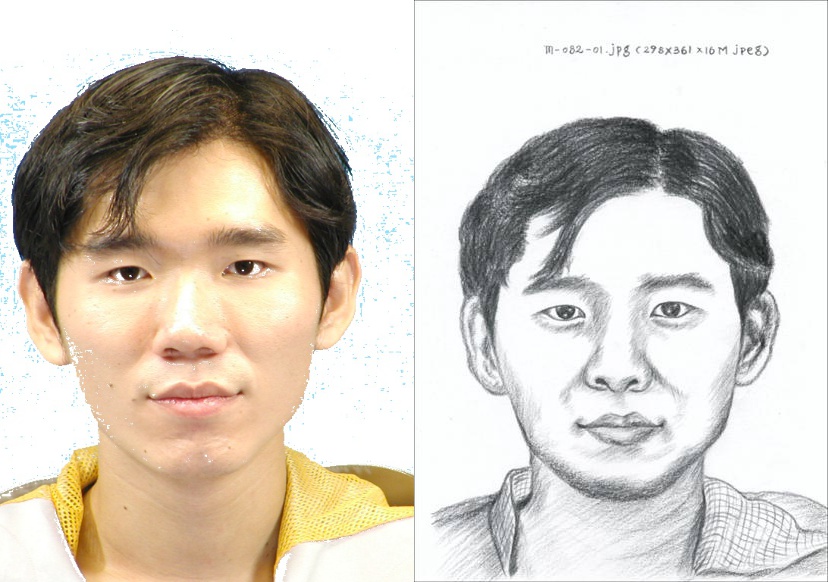 m-082-01.jpg (298x361x16M jpeg)